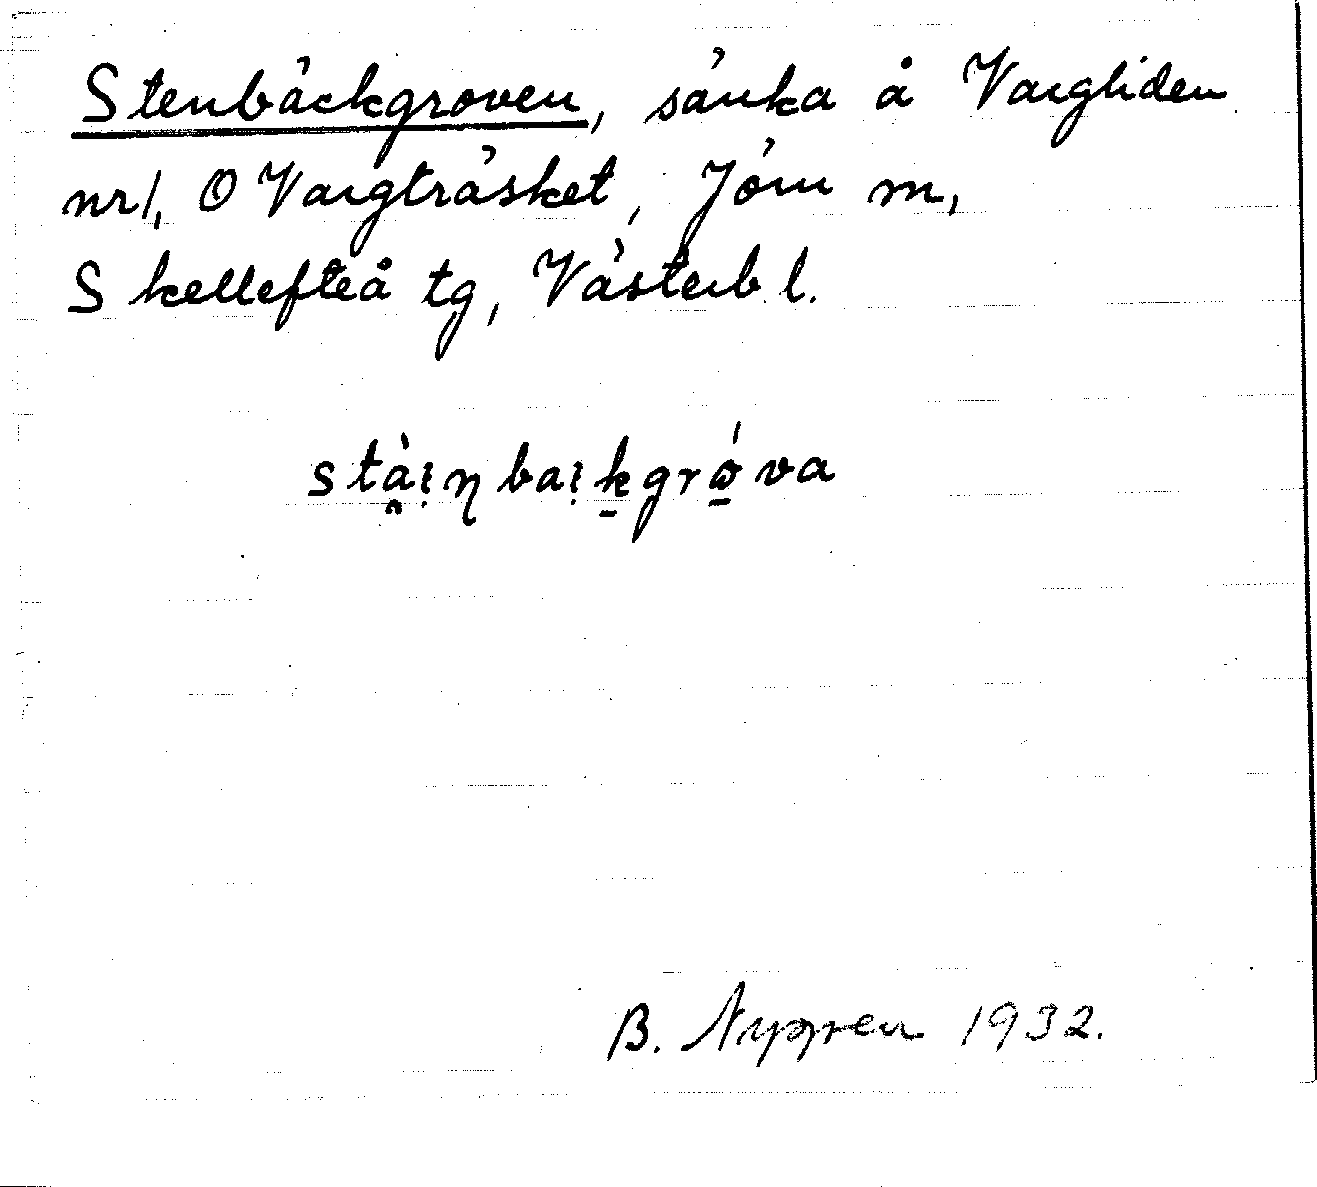 Stenbäckgroven, sänka å Vargliden
nr 1, O Vargträsket, Jörn m,
Skellefteå tg, Västerb. l.
B. Nygren 1932.